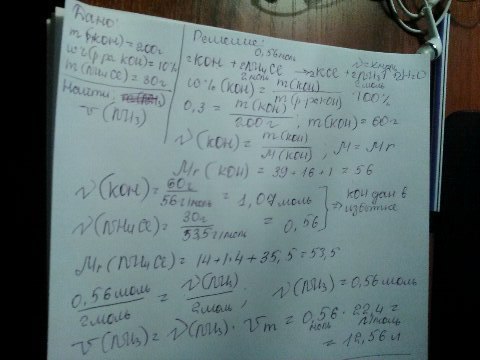 Дано:
m(р-ра KOH)=200г
w%(р-ра KOH)=10%
m(NH4Cl)=30г
Найти:
V(NH3)
Решение:
0,56 моль
2KOH + 2NH4Cl → 2KCl + 2NH3↑ 2H2O
2 моль 2 моль
w%(KOH) = m(KOH) / m(р-ра KOH) · 100%
0,3 = m(KOH) / 200г , m(KOH) = 60г
ν(KOH) = m(KOH) / M(KOH) , M = Mr
Mr(KOH) = 39 + 16 + 1 = 56
ν(KOH) = 60г / 56 г/моль = 1,07 моль
ν(NH4Cl) = 30г / 53,5 г/моль = 0,56
⇒ KOH дан в избытке
Mr(NH4Cl) = 14 + 1·4 + 35,5 = 53,5
0,56 моль / 2 моль = ν(NH3) / 2 моль ; ν(NH3) = 0,56 моль
V(NH3) = ν(NH3) · Vm = 0,56 моль · 22,4 л/моль =
= 12,56 л